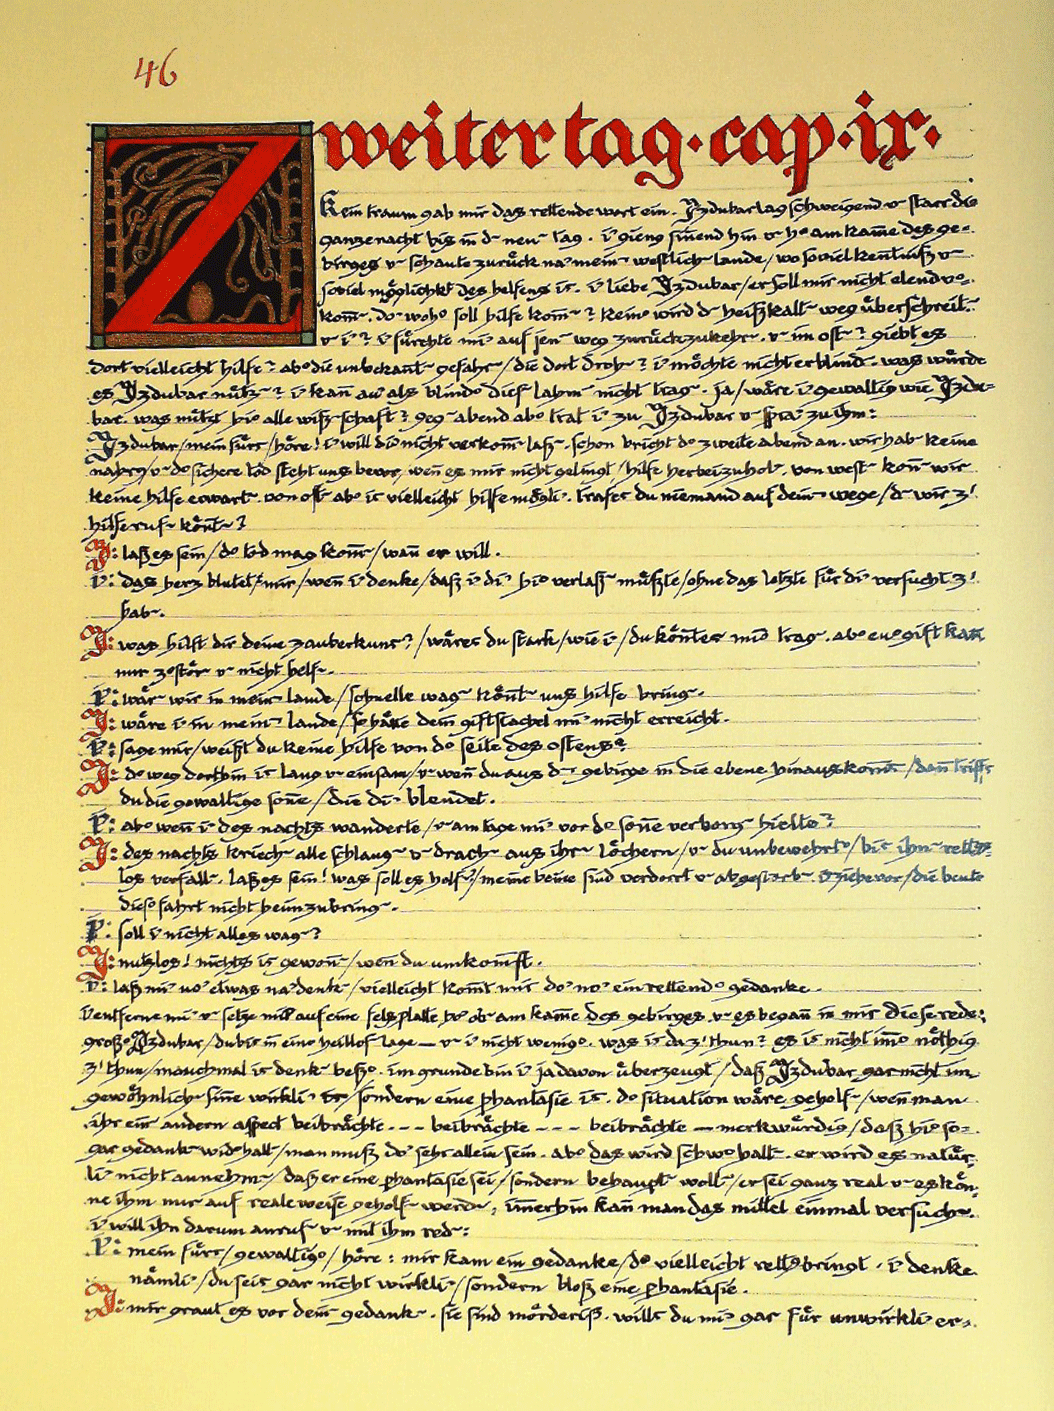 46
Zweiter tag · cap · ix ·
Kein traum gab mir das rettende wort ein. Izdubar lag schweigend u̅ starr die
ganze nacht bis in d̅ neu̅ tag. i̅ gieng sinend hin u̅ h̅ am kam̅e des ge=
birges u̅ schaute zurück na̅ mein̅ westlich̅ lande, wo soviel kent̅niß u̅
soviel möglichkt̅ des helfens is̅. i̅ liebe Izdubar/er soll mir nicht elend v̅
kom̅. do̅ woh̅ soll hilfe kom̅? keine̅ wird d̅ heißkalt̅ weg überschreit̅.
u̅ i̅? i̅ fürchte mi̅ auf jen̅ weg zurückzukehr̅. u̅ im ost̅? giebt es
dort vielleicht hilfe? ab̅ die unbekan̅t̅ gefahr̅/die dort droh̅? i̅ möchte nicht erblind̅. was würde
es Izdubar nütz̅? i̅ kan̅ au̅ als blind̅ dies̅ lahm̅ nicht trag̅. ja/wäre i̅ gewaltig wie Izdu=
bar. was nützt hi̅ alle wiss̅schaft? geg̅ abend ab̅ trat i̅ zu Izdubar u̅ spra̅ zu ihm:
Izdubar/mein fürst/höre! i̅ will di̅ nicht verkom̅ lass̅. schon bricht d̅ zweite abend an. wir hab̅ keine
nahrg̅/u̅ d̅ sichere tod steht uns bevor/wen̅ es mir nicht gelingt/hilfe herbeizuhol̅. von west̅ kön̅ wir
keine hilfe erwart̅. von ost̅ ab̅ is̅ vielleicht hilfe mögli̅. trafest du niemand auf dein̅ wege/d̅ wir z'
hilfe ruf̅ könt̅?
I: laß es sein/d̅ tod mag kom̅/wan̅ er will.
i̅: das herz blutet mir/wen̅ i̅ denke/daß i̅ di̅ hi̅ verlass̅ müßte/ohne das letzte für di̅ versucht z'
hab̅.
I: was hilft dir deine zauberkunst?/wärest du stark/wie i̅/du kön̅test mi̅ trag̅. ab̅ eu̅ gift kan̅
nur z̅stör̅ u̅ nicht helf̅.
i̅: wär̅ wir in mein̅ lande/schnelle wag̅ könt̅ uns hilfe bring̅.
I: wäre i̅ in mein̅ lande/so hätte dein giftstachel mi̅ nicht erreicht.
i̅: sage mir/weißt du keine hilfe von d̅ seite des ostens?
I: d̅ weg dorthin is̅ lang u̅ einsam/u̅ wen̅ du aus d̅ gebirge in die ebene hinauskomst̅/dan̅ trifft
du die gewaltige son̅e/die di̅ blendet.
i̅: ab̅ wen̅ i̅ des nachts wanderte/u̅ am tage mi̅ vor d̅ son̅e verborg̅ hielte?
I: des nachts kriech̅ alle schlang̅ u̅ drach̅ aus ihr̅ löchern/u̅ du unbewehrt̅/bis̅ ihn̅ rettgs=
los verfall̅. laß es sein! was soll es helf̅?/meine beine sind verdorrt u̅ abgestorb̅. i̅ ziehe vor/die beute
dies̅ fahrt nicht heimzubring̅.
i̅: soll i̅ nicht alles wag̅?
I: nutzlos! nichts is̅ gewon̅/wen̅ du umkom̅st.
i̅: laß mi̅ no̅ etwas na̅denk̅/vielleicht kom̅t mir do̅ no̅ ein rettend̅ gedanke.
i̅ entferne mi̅ u̅ setze mi̅ auf eine felsplatte ho̅ ob̅ am kam̅e des gebirges. u̅ es began̅ in mir diese rede:
groß̅ Izdubar/du bis̅ in eine heillos̅ lage — u̅ i̅ nicht wenig̅. was is̅ da z' thun? es is̅ nicht im̅ nöthig
z' thun/manchmal is̅ denk̅ bess̅. im grunde bin i̅ ja davon überzeugt/daß Izdubar gar nicht im
gewöhnlich̅ sin̅e wirkli̅ is̅/sondern eine phantasie is̅. d̅ situation wäre geholf̅/wen̅ man
ihr ein̅ andern aspect beibrächte --- beibrächte --- beibrächte — merkwürdig/daß hi̅ so=
gar gedank̅ wid̅hall̅/man muß do̅ sehr allein sein. ab̅ das wird schw̅ halt̅. er wird es natür=
li̅ nicht annehm̅/daß er eine phantasie sei/sondern behaupt̅ woll̅/er sei ganz real u̅ es kön=
ne ihm nur auf reale weise geholf̅ werd̅; im̅erhin kan̅ man das mittel einmal versuch̅.
i̅ will ihn darum anruf̅ u̅ mit ihm red̅:
i̅: mein fürst/gewaltig̅/höre: mir kam ein gedanke/d̅ vielleicht rettg̅ bringt. i̅ denke
nämli̅/du seis̅ gar nicht wirkli̅/sondern bloß eine phantasie.
I: mir graut es vor dein̅ gedank̅. sie sind mörderis̅. wills̅ du mi̅ gar für unwirkli̅ er=